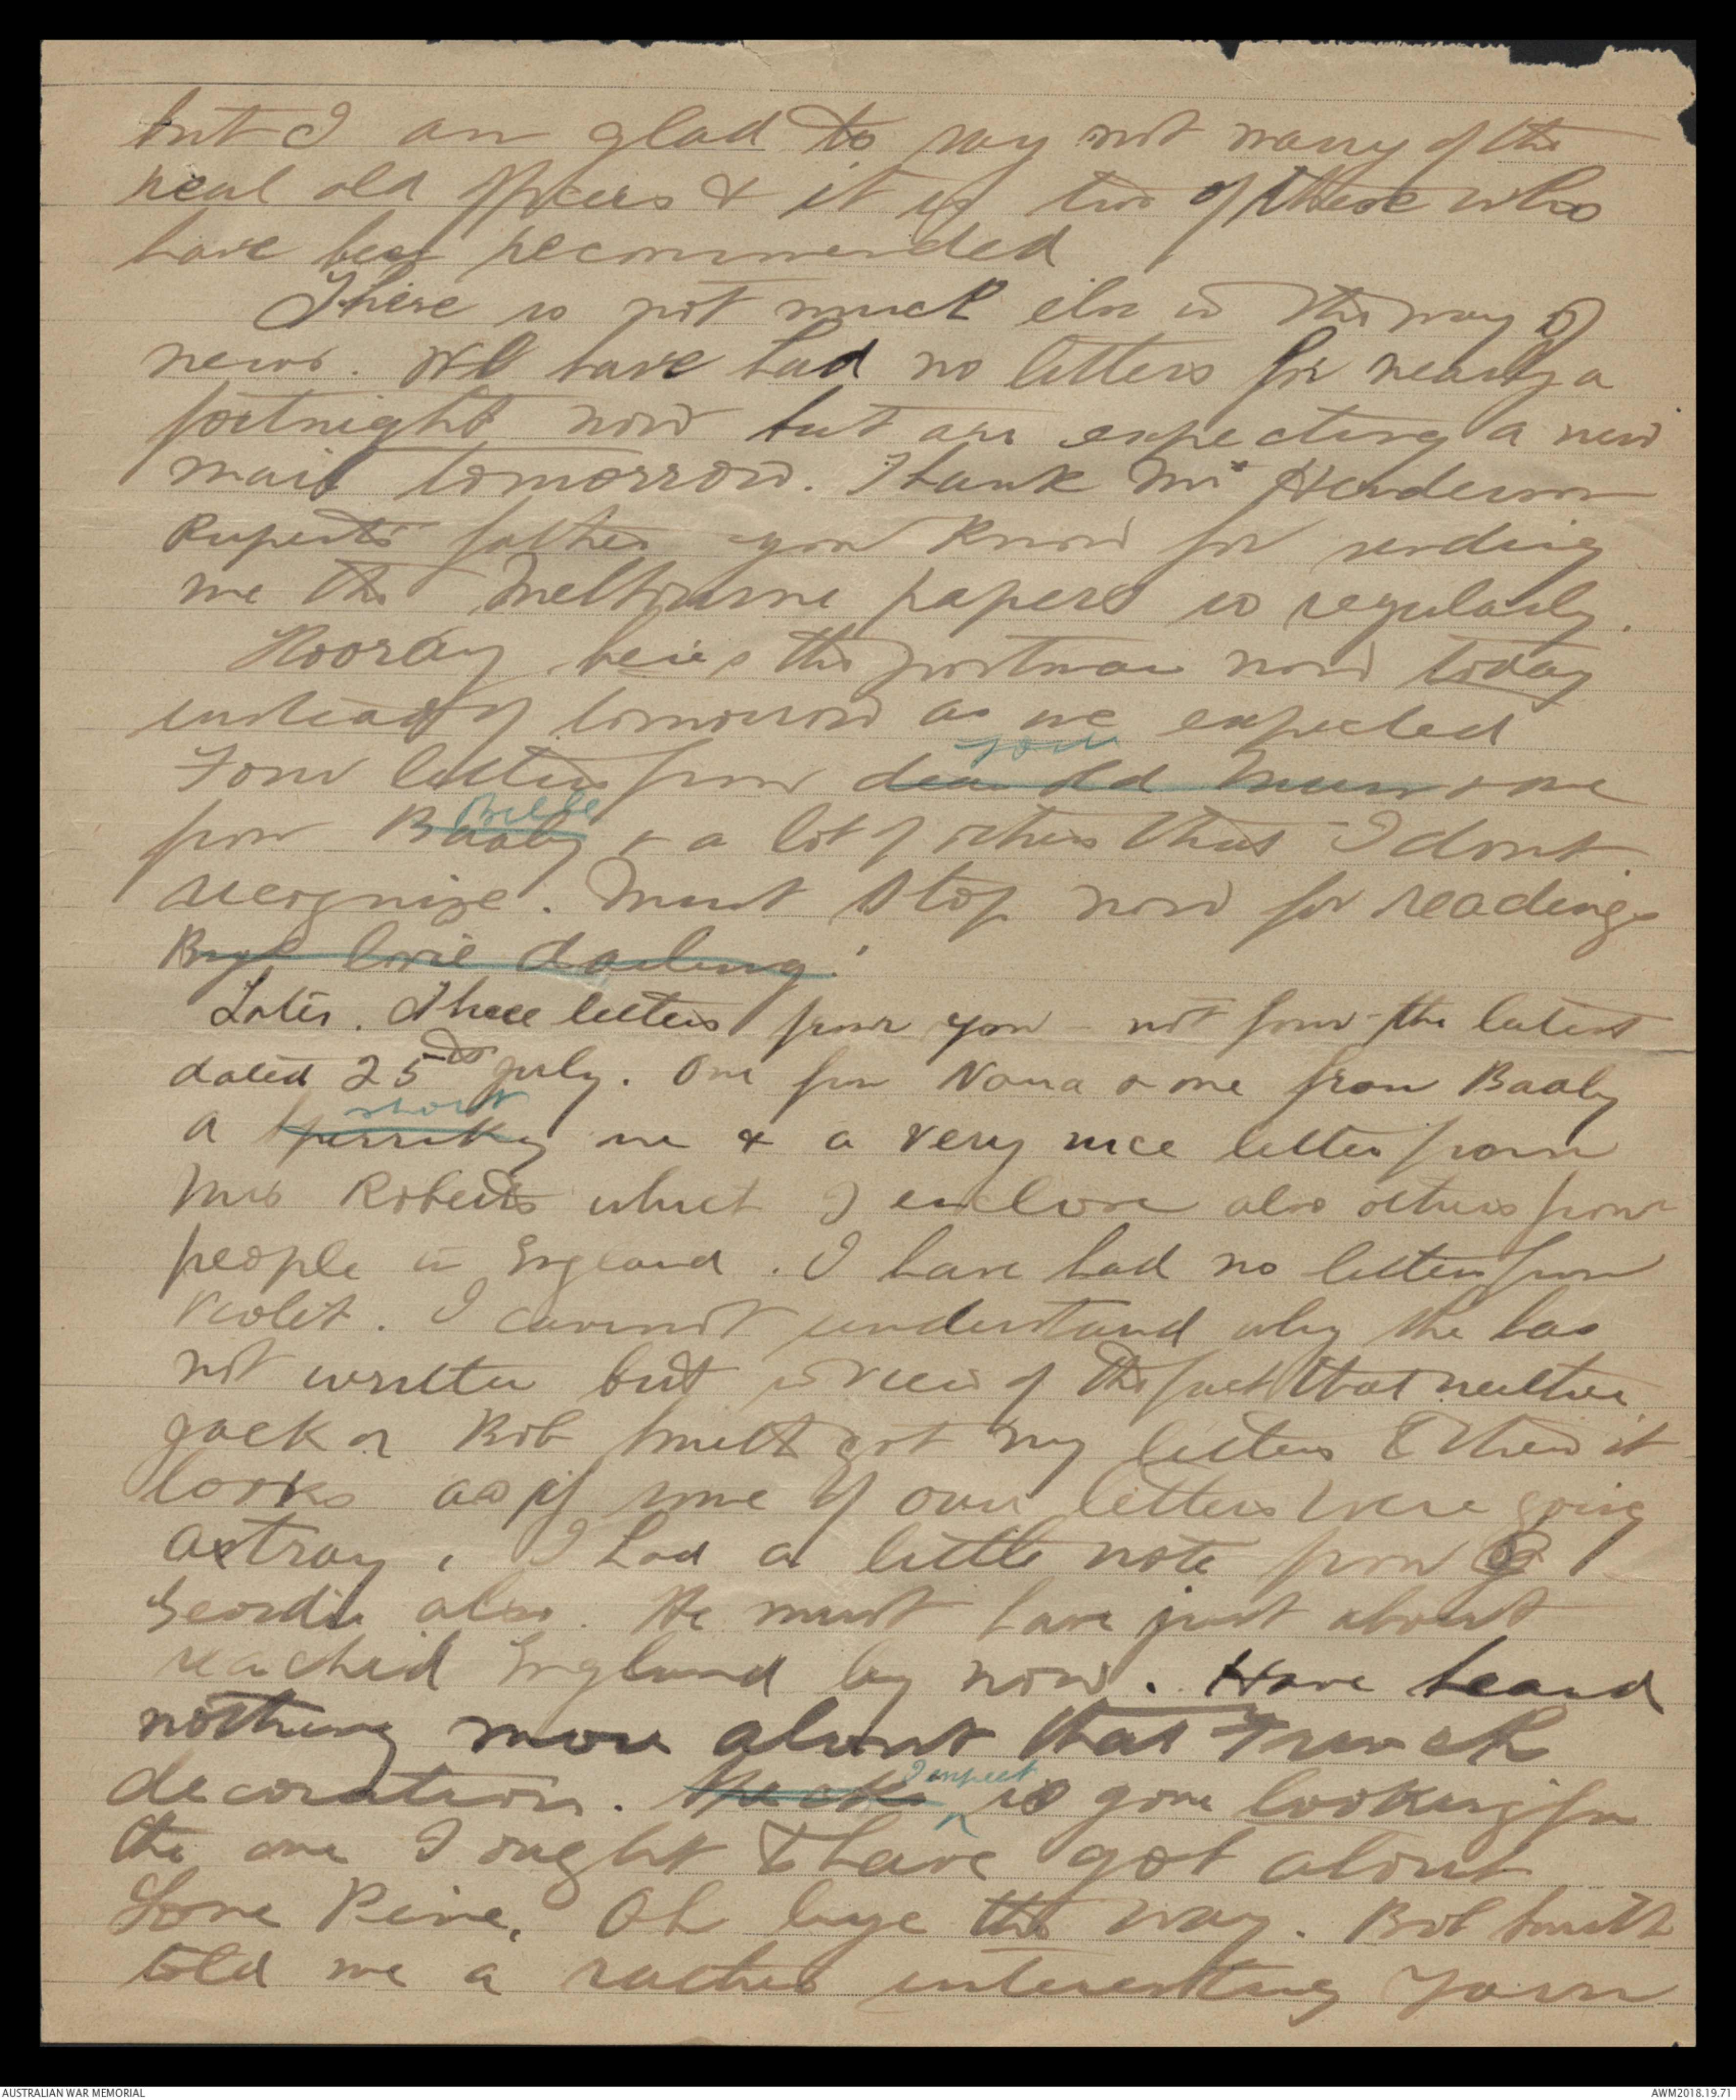 but I am glad to say not many of the
real old officers & it is two of these who
have been recommended
There is not much else in the way of
news. We have had no letters for nearly a
fortnight now but are expecting a new
mail tomorrow. Thank Mr Henderson
Ruperts father you know for sending
me the Melbourne papers so regularly.
Hooray here's the postman now today
instead of tomorrow as we expected
you
Four letters from dear old Mum & one
Belle
from Baaby & a lot of others that I dont
recognize. Must stop now for readings
Bye love darling.
Later. Three letters from you - not four - the latest
dated 25th July. One from Nana & one from Baaby
short
a one & a very nice letter from
Mrs Roberts which I enclose also others from
people in England. I have had no letters from
Violet. I cannot understand why she has
not written but in view of the fact that neither
Jack or Bob Smith got my letters to them it
looks as if some of our letters were going
astray. I had a little note from
Geordie also. He must have just about
reached England by now. Have heard
nothing more about that French
I expect
decoration. is gone looking for
the one I ought to have got about
Lone Pine. Oh bye the way. Bob Smith
told me a rather interesting yarn
AUSTRALIAN WAR MEMORIAL
AWM2018.19.71